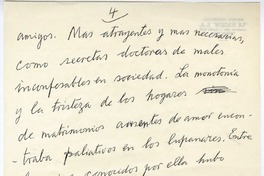 4
amigos. Mas atrayentes y mas necesarias,
como secretas doctoras de males
inconfesables en sociedad. La monotonia
y la tristeza de los hogares
de matrimonios ausentes de amor encon-
-traba paliativos en los lupanares. Entre
conocidos por ella hubo